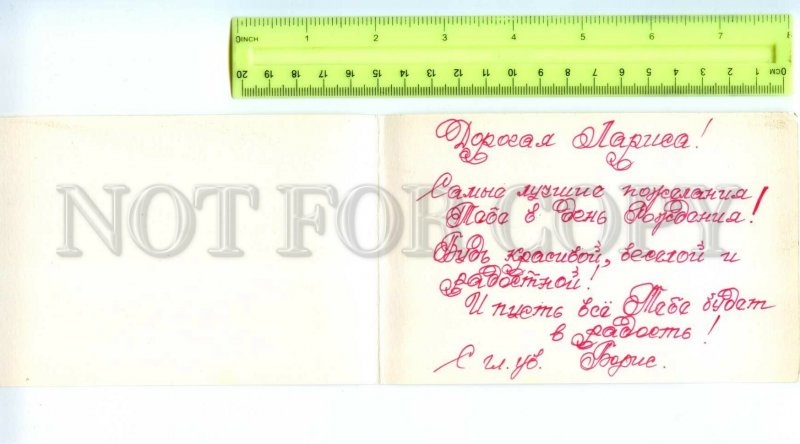 0INCH 1 2 3 4 5 6 7 8
20 19 18 17 16 15 14 13 12 11 10 9 8 7 6 5 4 3 2 1 0CM
NOT FOR COPY
Дорогая Лариса!
Самые лучшие пожелания
Тебе в день Рождения!
Будь красивой, веселой и
радостной!
И пусть всё Тебе будет
в радость!
С гл. ув. Борис.